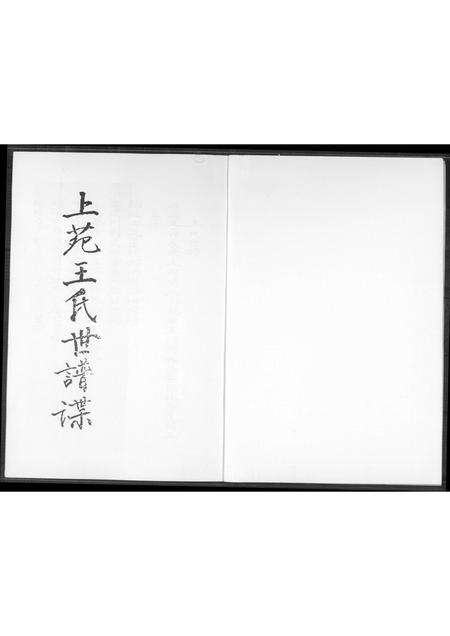 上苑王氏世譜谍